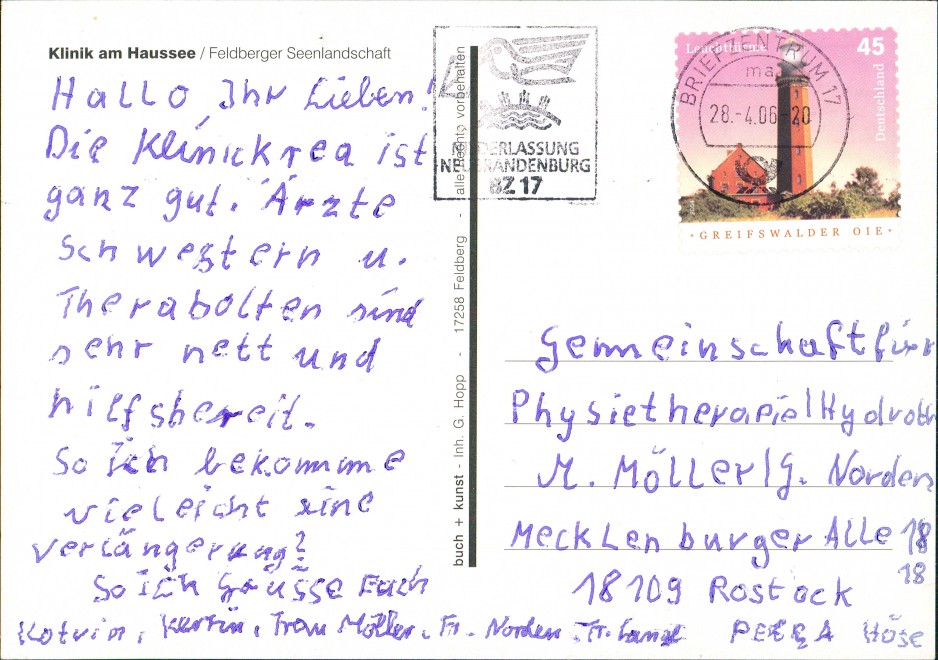 Klinik am Haussee / Feldberger Seenlandschaft
Hallo Ihr Lieben!
Die Klinickrea ist
ganz gut. Ärzte
Schwestern u.
Therabolten sind
sehr nett und
hilfsbereit.
So ich bekomme
vieleicht eine
verlängerung?
So ich Grüsse Euch
Katrin, Kerstin, Frau Möller, Fr. Norden, Fr.
PETRA Höse
buch + kunst - Inh. G. Hopp - 17258 Feldberg - alle Rechte vorbehalten
NIEDERLASSUNG
NEUBRANDENBURG
BZ 17
BRIEFZENTRUM 17
ma
28.-4.06-20
Leuchttürme
45
Deutschland
GREIFSWALDER OIE
Gemeinschaft für
Physietherapie/Hydroth
M. Möller/G. Norden
Mecklenburger Alle 18
18
18109 Rostock